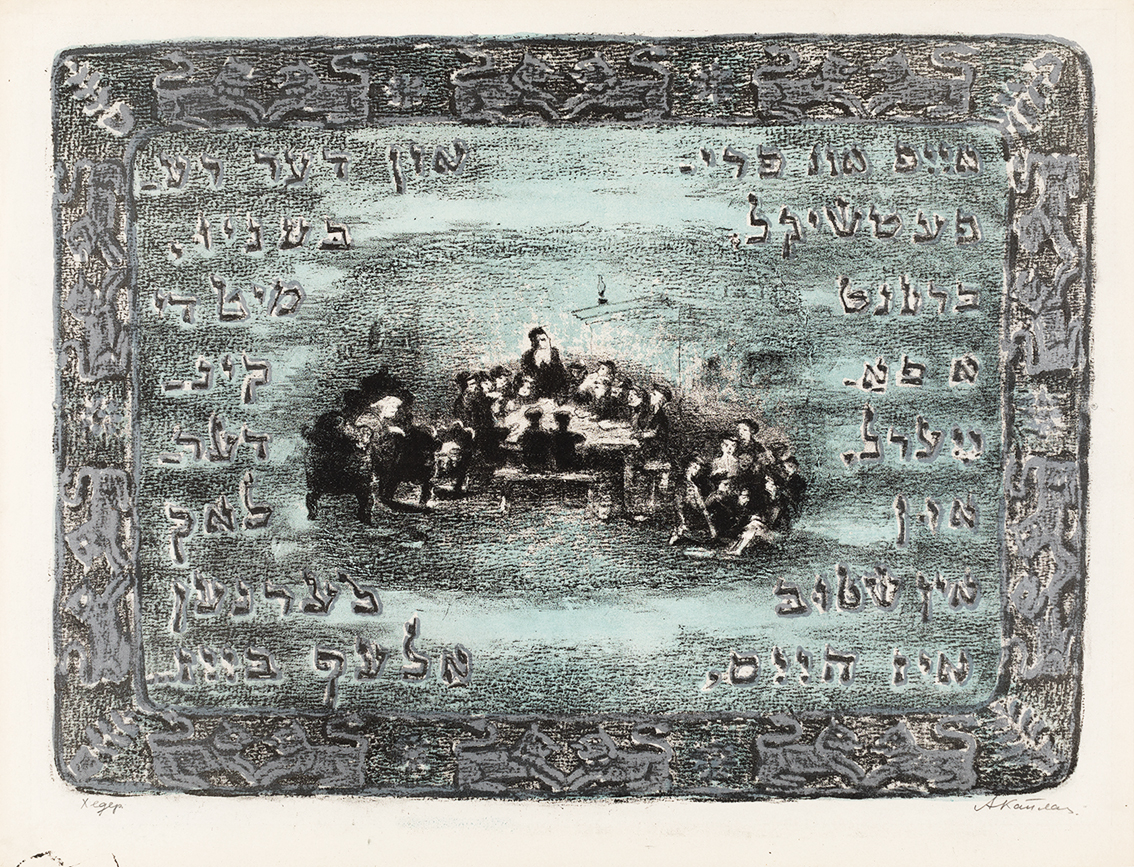 פרי-
פעטשיקל,
ברענט
א פא-
ייערל,
און
אין שטוב
איז הייס,
און דער רע-
בעניו,
מיט די
קינ-
דער-
לאך
לערנען
אלעף בייס.
Хедер
А Каплан